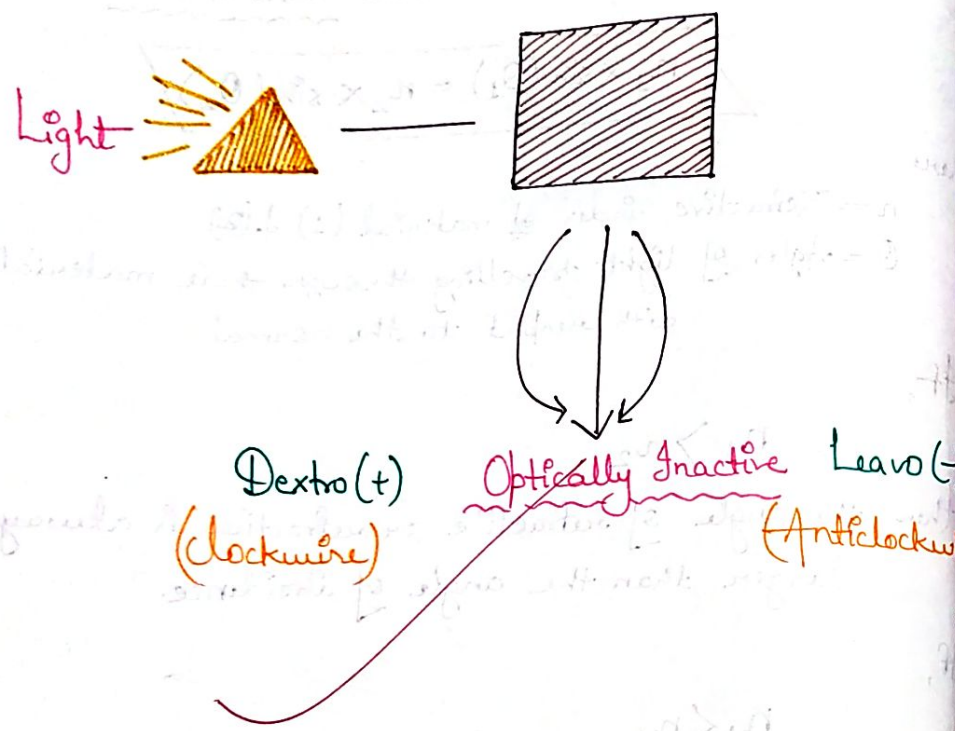 Light
Dextro(+) Optically Inactive Leavo(-
(Clockwise) (Anticlockw